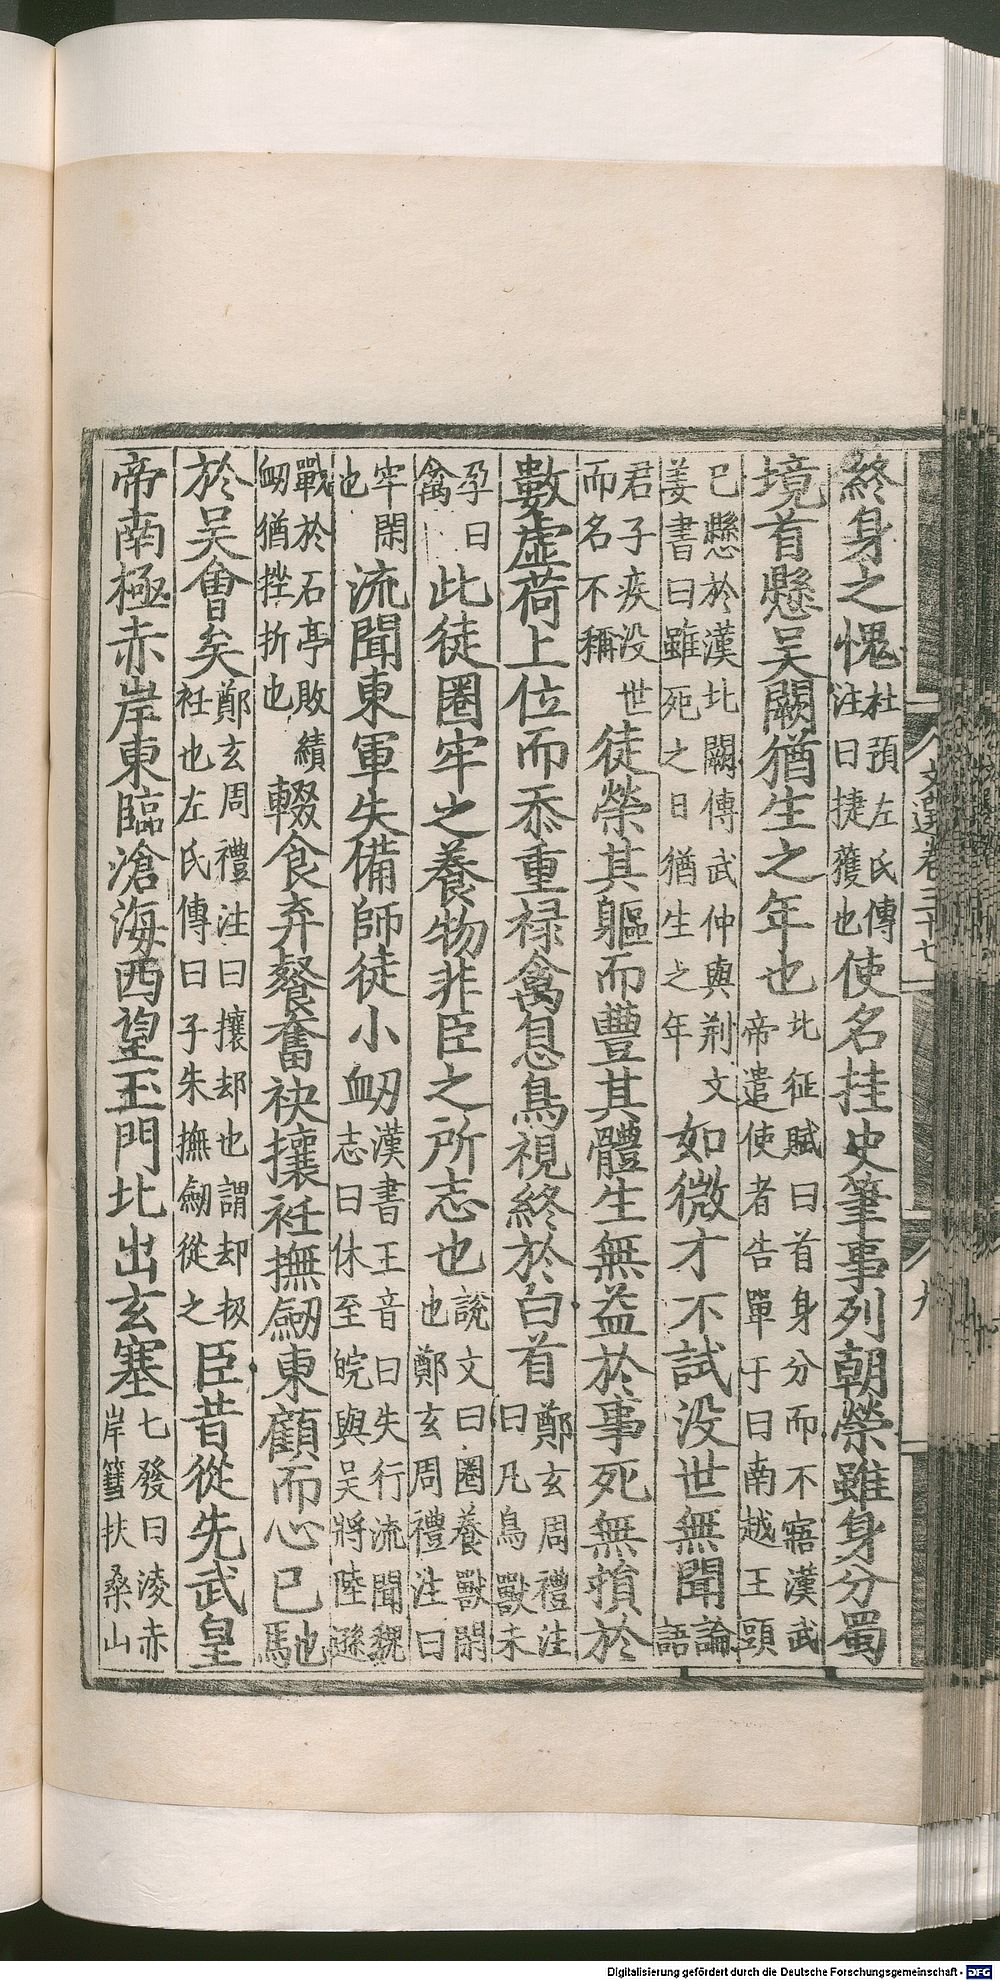 文選卷三十七
九
終身之愧杜預左氏傳注曰捷獲也使名挂史筆事列朝榮雖身分蜀
境首懸吳闕猶生之年也北征賦曰首身分而不寤漢武帝遣使者告單于曰南越王頭
已懸於漢北闕傳武仲與荆文姜書曰雖死之日猶生之年如微才不試没世無聞論語
君子疾没世而名不稱徒榮其軀而豐其體生無益於事死無損於
數虛荷上位而忝重禄禽息鳥視終於白首鄭玄周禮注曰凡鳥獸未
孕曰禽此徒圈牢之養物非臣之所志也說文曰圈養獸閑也鄭玄周禮注曰
牢閑也流聞東軍失備師徒小衂漢書王音曰失行流聞魏志曰休至皖與吳將陸遜
戰於石亭敗績衂猶挫折也輟食弃餐奮袂攘衽撫劒東顧而心已馳
於吳會矣鄭玄周禮注曰攘却也謂却扱衽也左氏傳曰子朱撫劒從之臣昔從先武皇
帝南極赤岸東臨滄海西望玉門北出玄塞七發曰凌赤岸篲扶桑山
Digitalisierung gefördert durch die Deutsche Forschungsgemeinschaft - DFG